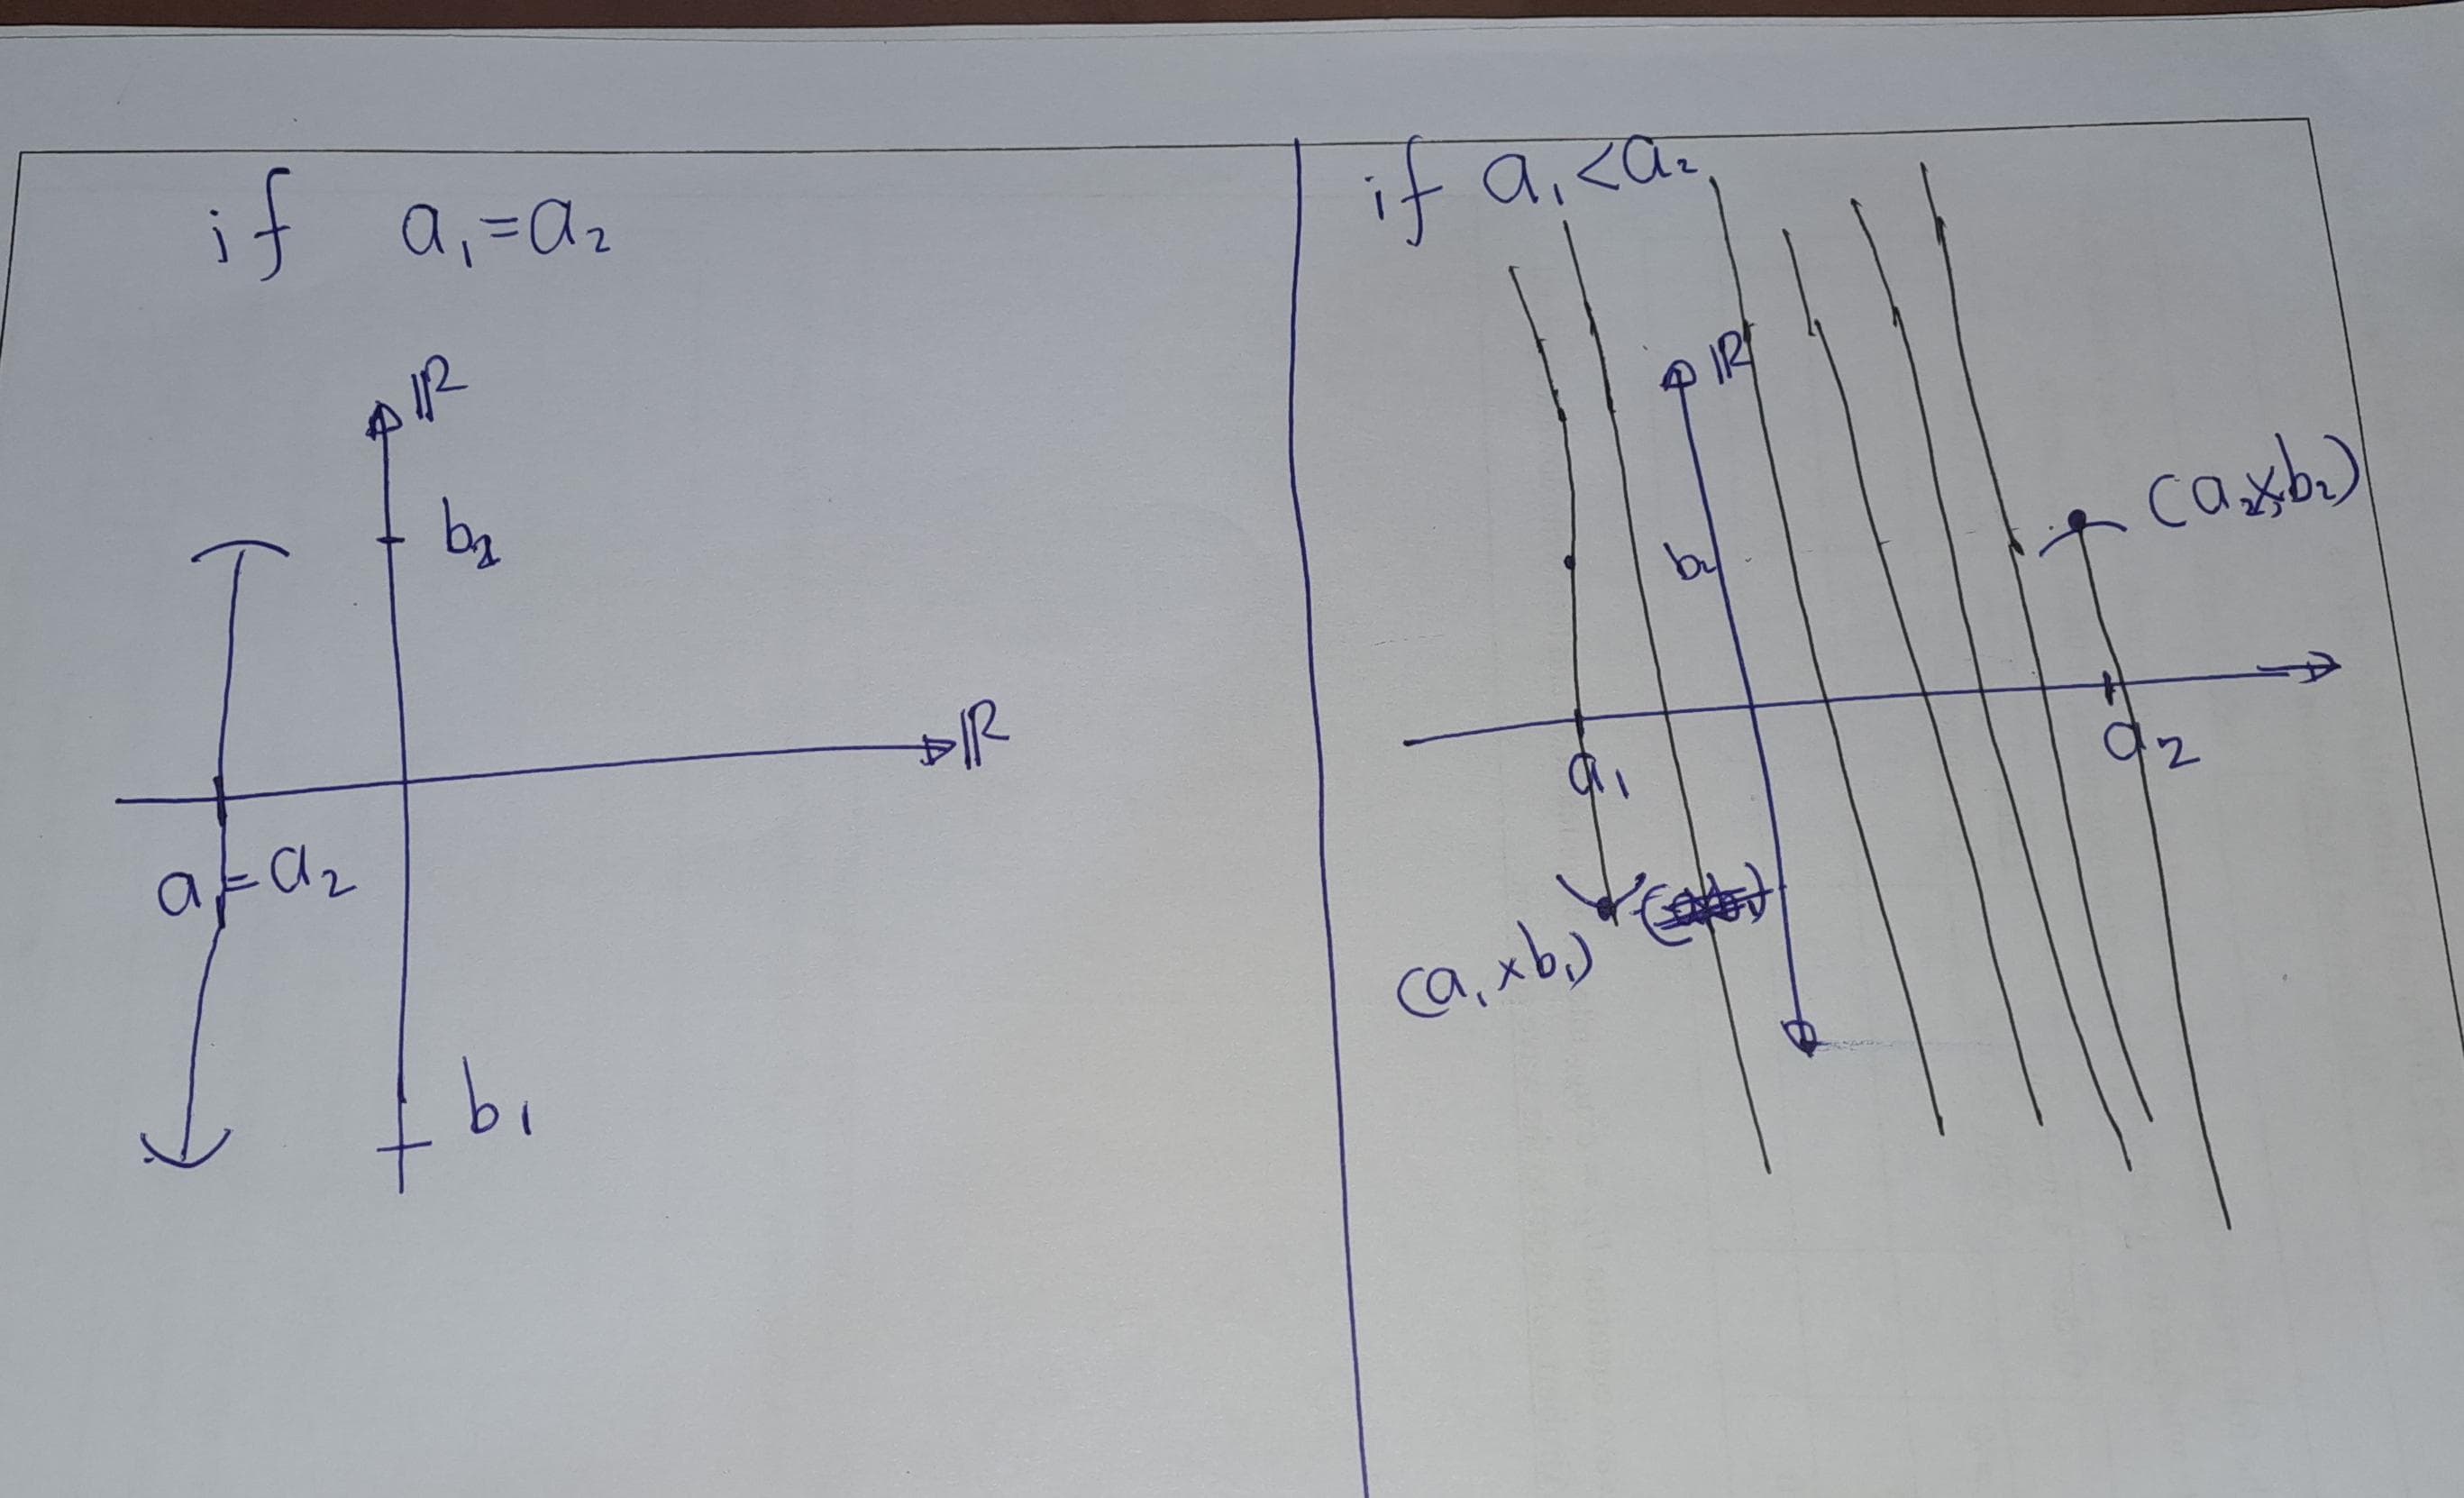 if a₁=a₂
ℝ
b₂
ℝ
a₁=a₂
b₁
if a₁<a₂
ℝ
(a₂×b₂)
b₂
a₁
a₂
(a₁×b₁)